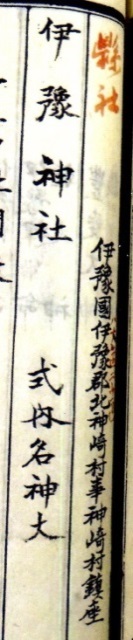 縣社
伊豫國伊豫郡北神崎村事神崎村鎮座
伊豫神社
式内名神大